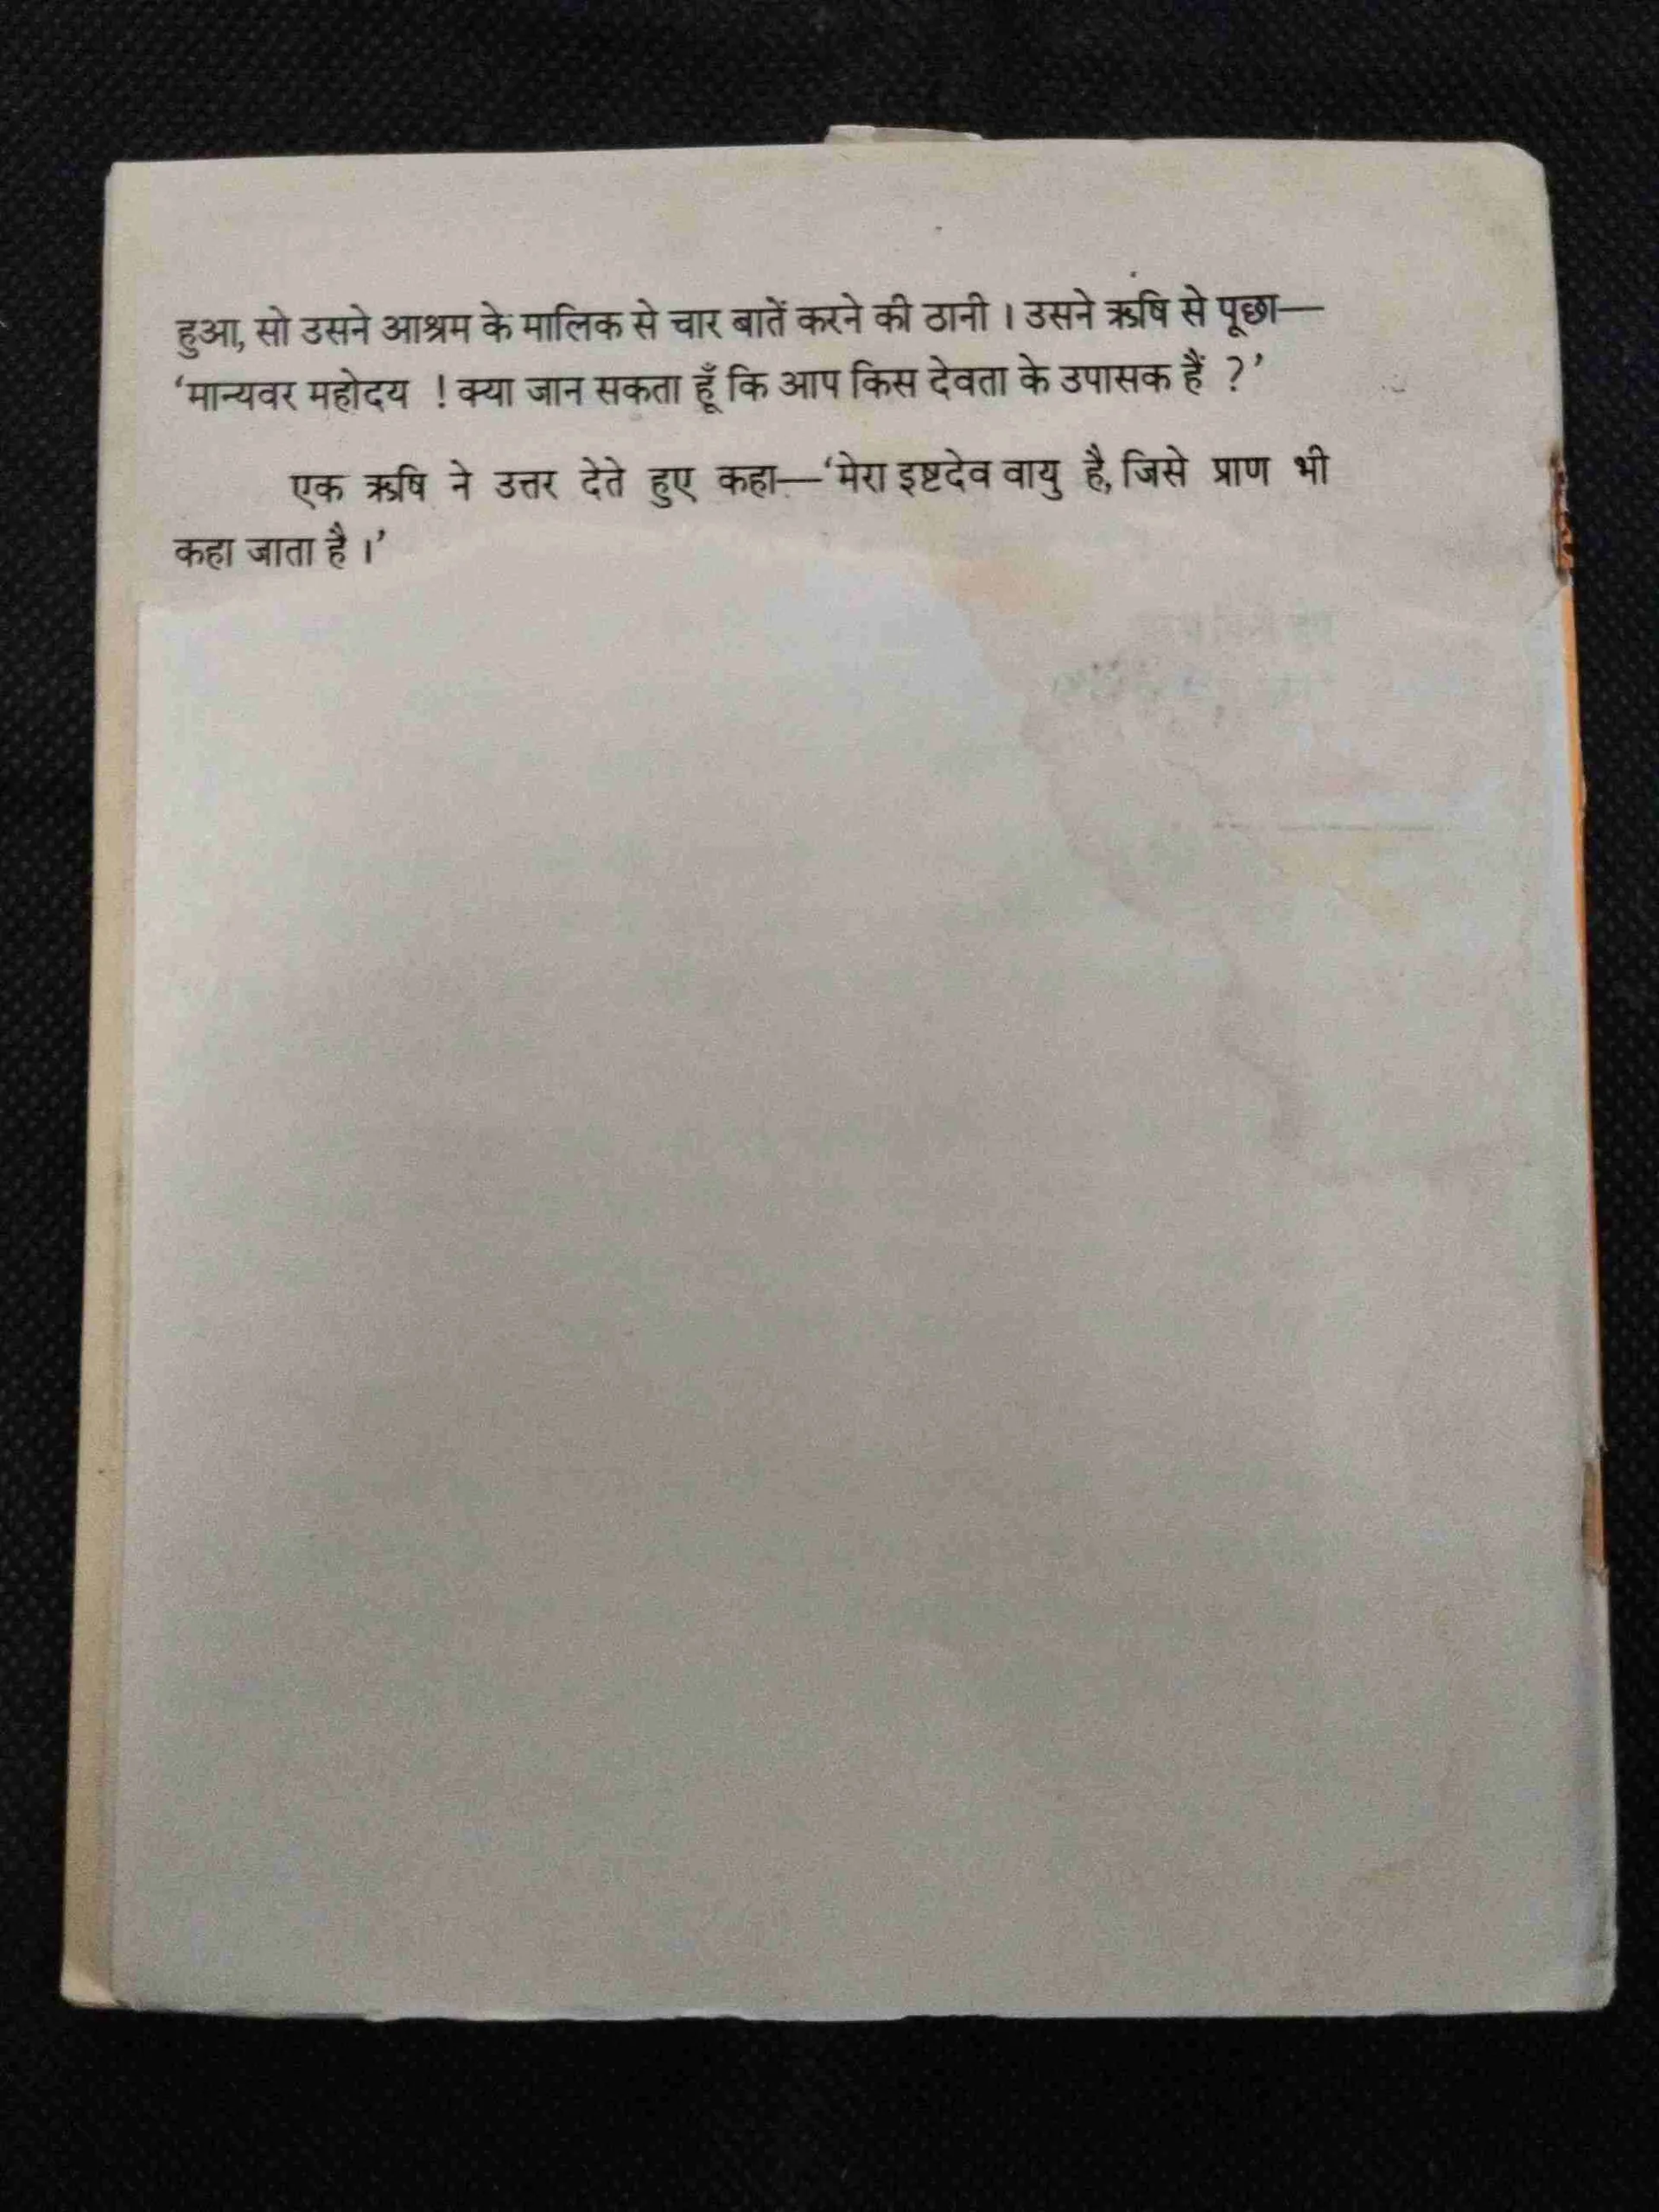 हुआ, सो उसने आश्रम के मालिक से चार बातें करने की ठानी । उसने ऋषि से पूछा—
‘मान्यवर महोदय ! क्या जान सकता हूँ कि आप किस देवता के उपासक हैं ?’
एक ऋषि ने उत्तर देते हुए कहा—‘मेरा इष्टदेव वायु है, जिसे प्राण भी
कहा जाता है ।’